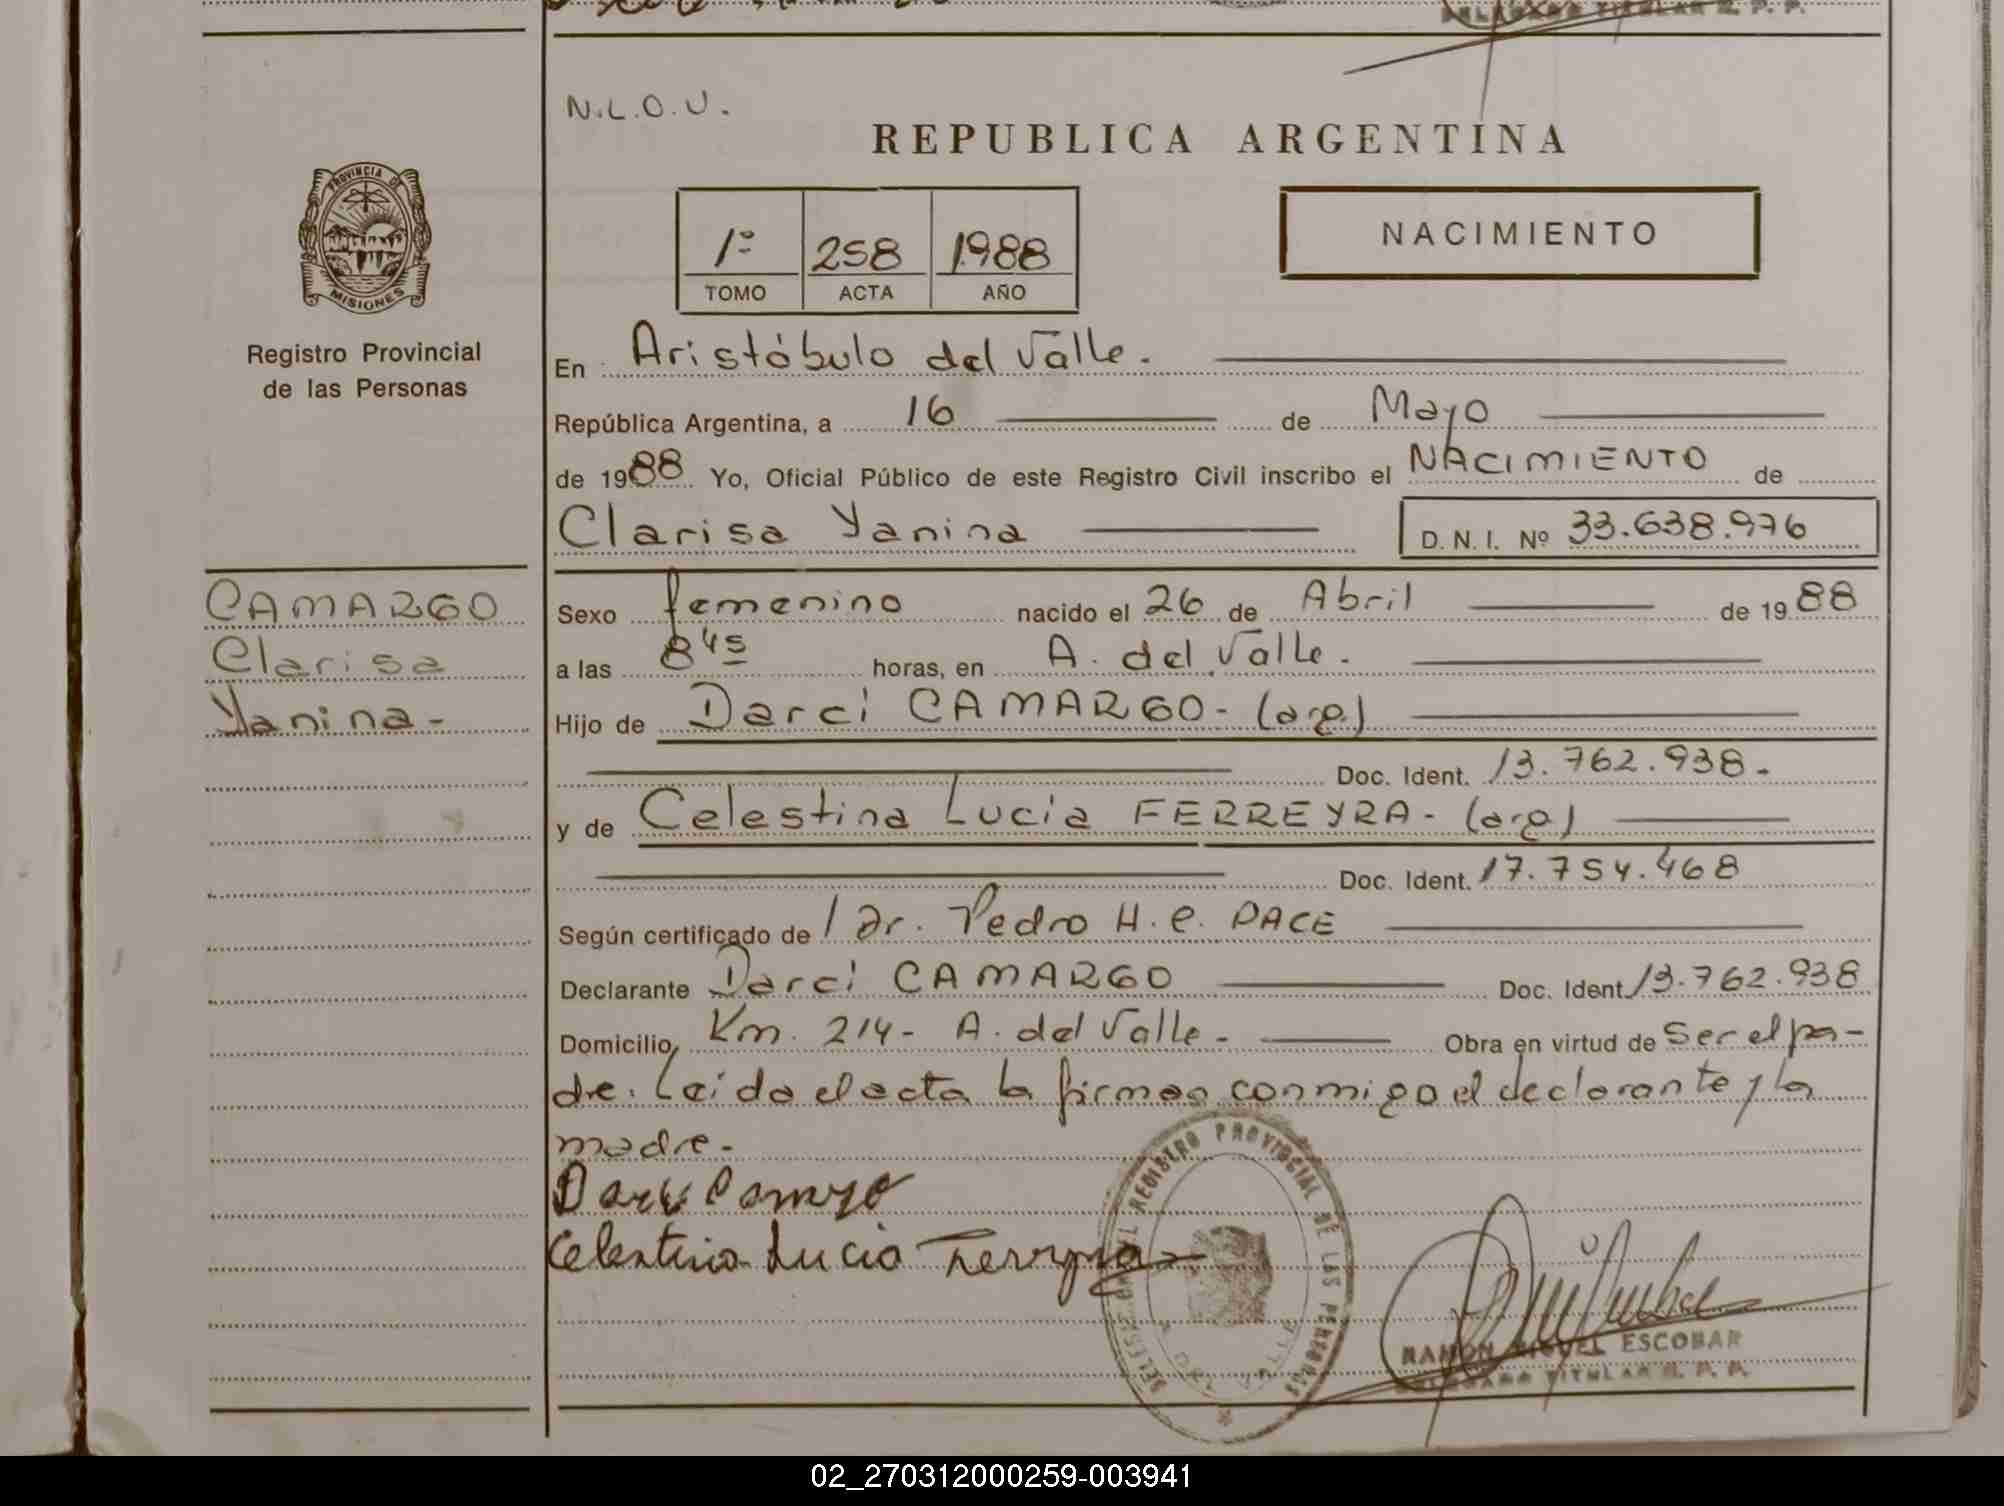 DELEGADO TITULAR R. P. P.
N.L.O.U.
REPUBLICA ARGENTINA
PROVINCIA DE
MISIONES
Registro Provincial
de las Personas
1º 258 1988
TOMO ACTA AÑO
NACIMIENTO
En Aristóbulo del Valle.
República Argentina, a 16 de Mayo
de 1988 Yo, Oficial Público de este Registro Civil inscribo el NACIMIENTO de
Clarisa Yanina D. N. I. Nº 33.638.976
CAMARGO
Clarisa
Yanina-
Sexo femenino nacido el 26 de Abril de 1988
a las 8 45 horas, en A. del Valle.
Hijo de Darci CAMARGO- (arg)
Doc. Ident. 13.762.938-
y de Celestina Lucia FERREYRA- (arg)
Doc. Ident. 17.754.468
Según certificado de / Dr. Pedro H. C. PACE
Declarante Darci CAMARGO Doc. Ident. 13.762.938
Domicilio Km. 214- A. del Valle- Obra en virtud de ser el pa-
dre. Leida el acta la firman conmigo el declarante y la
madre-
Darci Camargo
Celestina Lucia Ferreyra
REGISTRO PROVINCIAL DE LAS PERSONAS
VALLE
RAMON MIGUEL ESCOBAR
DELEGADO TITULAR R. P. P.
02_270312000259-003941